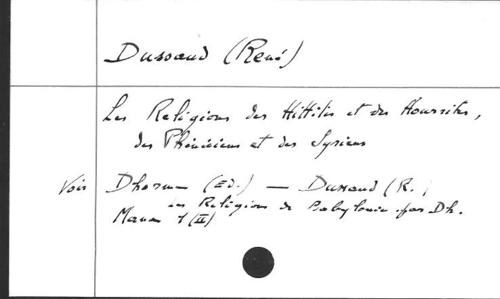 Dussaud (René)
Les Religions des Hittites et des Hourrites,
des Phéniciens et des Syriens
Voir Dhorme (Ed.) — Dussaud (R.)
Les Religions de Babylonie par Dh.
Mana 1 (II)